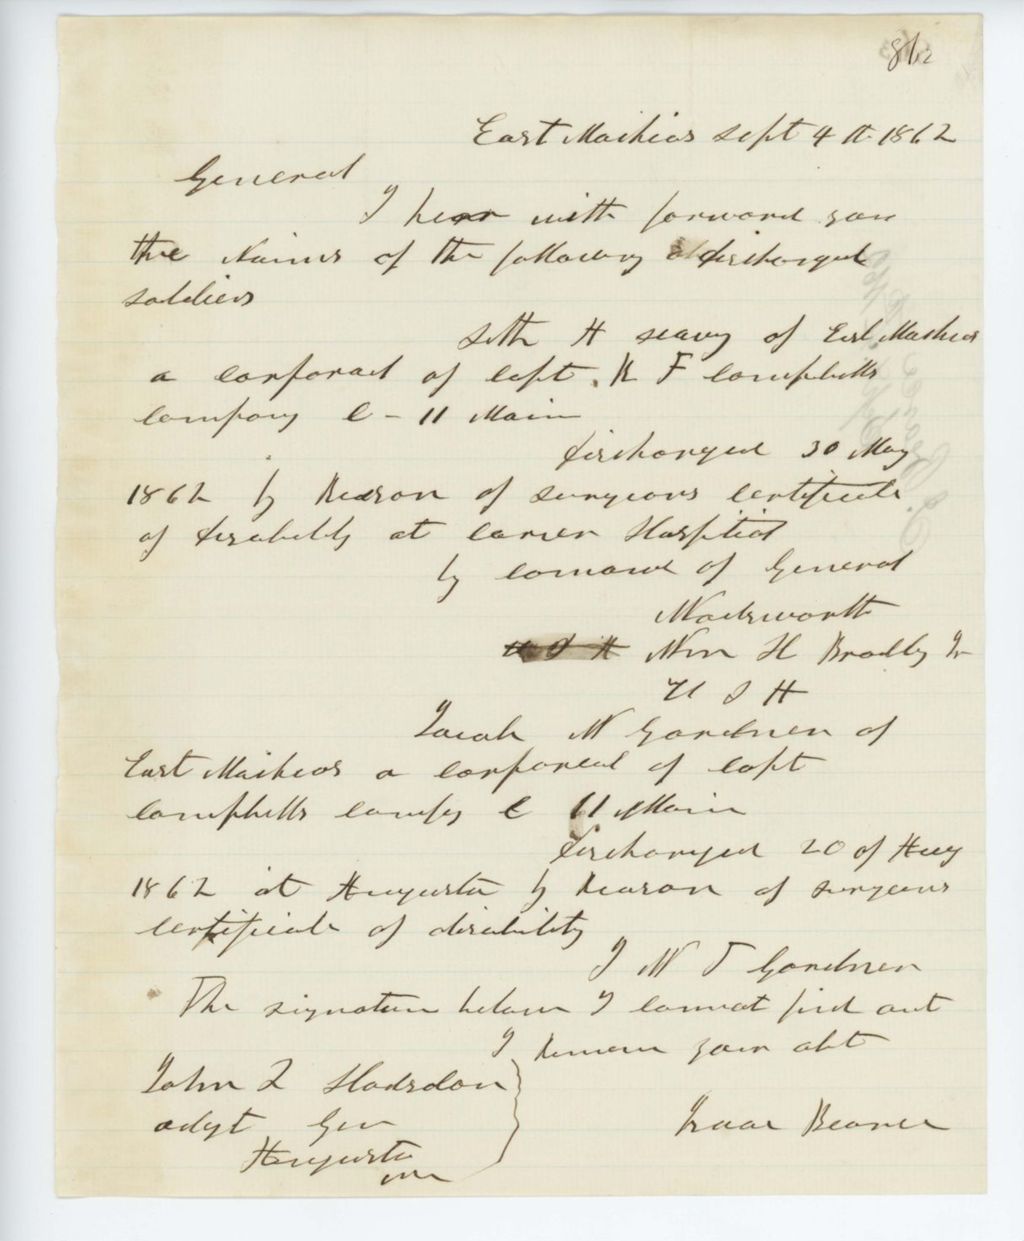 862
East Machias Sept 4th 1862
General
I hear with forward you
the Naims of the following discharged
soldiers
Seth H Seavy of East Machias
a corporal of Capt. R F Campbells
Company C - 11 Main
discharged 30 May
1862 by Reason of surgeons certificate
of disability at carver Hospital
by comand of General
Wadsworth
U S A Wm H Bradly Jr
U S A
Jacob W Gardner of
East Machias a corporeal of Capt
Campbells Company C 11 Main
discharged 20 of Aug
1862 at Augusta by reason of surgeons
certificate of disability
J W T Gardner
The signature below I cannot find out
I Remain your obt
John L Hodsdon
adgt Gen
Augusta
me
Isaac